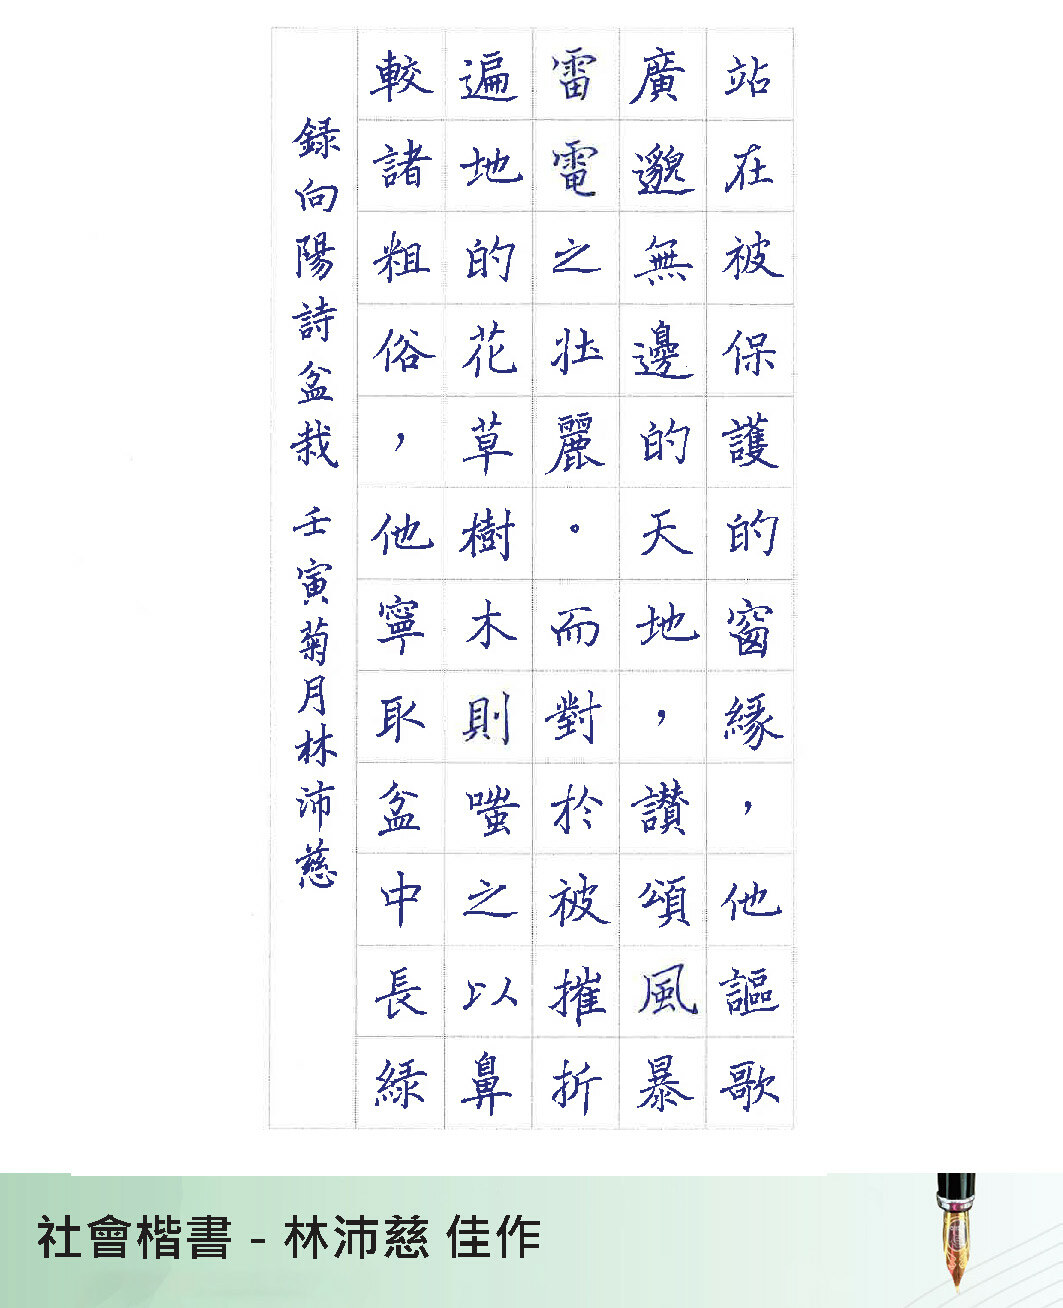 站在被保護的窗緣，他謳歌
廣邈無邊的天地，讚頌風暴
雷電之壯麗。而對於被摧折
遍地的花草樹木則嗤之以鼻
較諸粗俗，他寧取盆中長綠
録向陽詩盆栽 壬寅菊月林沛慈
社會楷書 - 林沛慈 佳作